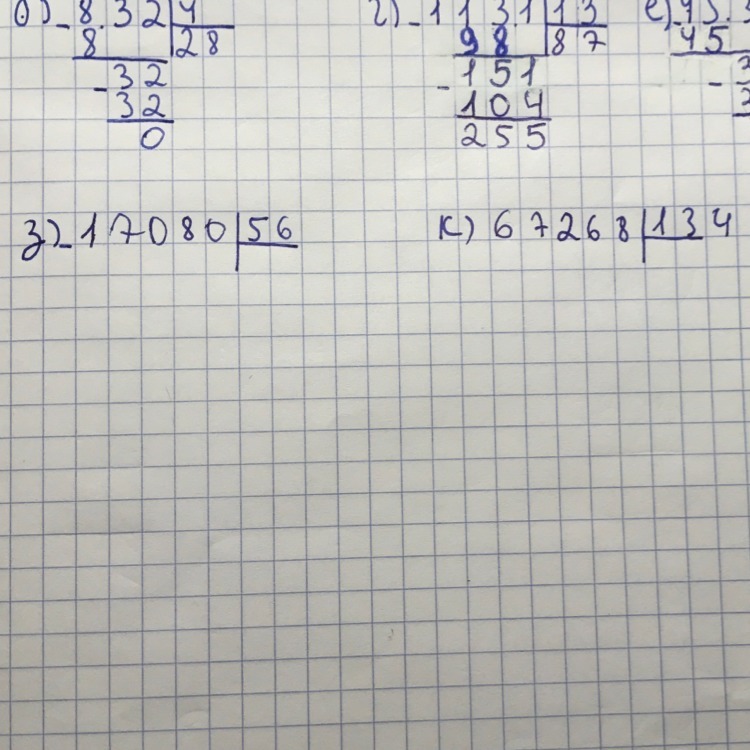 8 32 4
8 28
- 32
32
0
г) - 1131 13
98 87
- 151
104
255
е)
45
-
з) - 17080 56
к) 67268 134